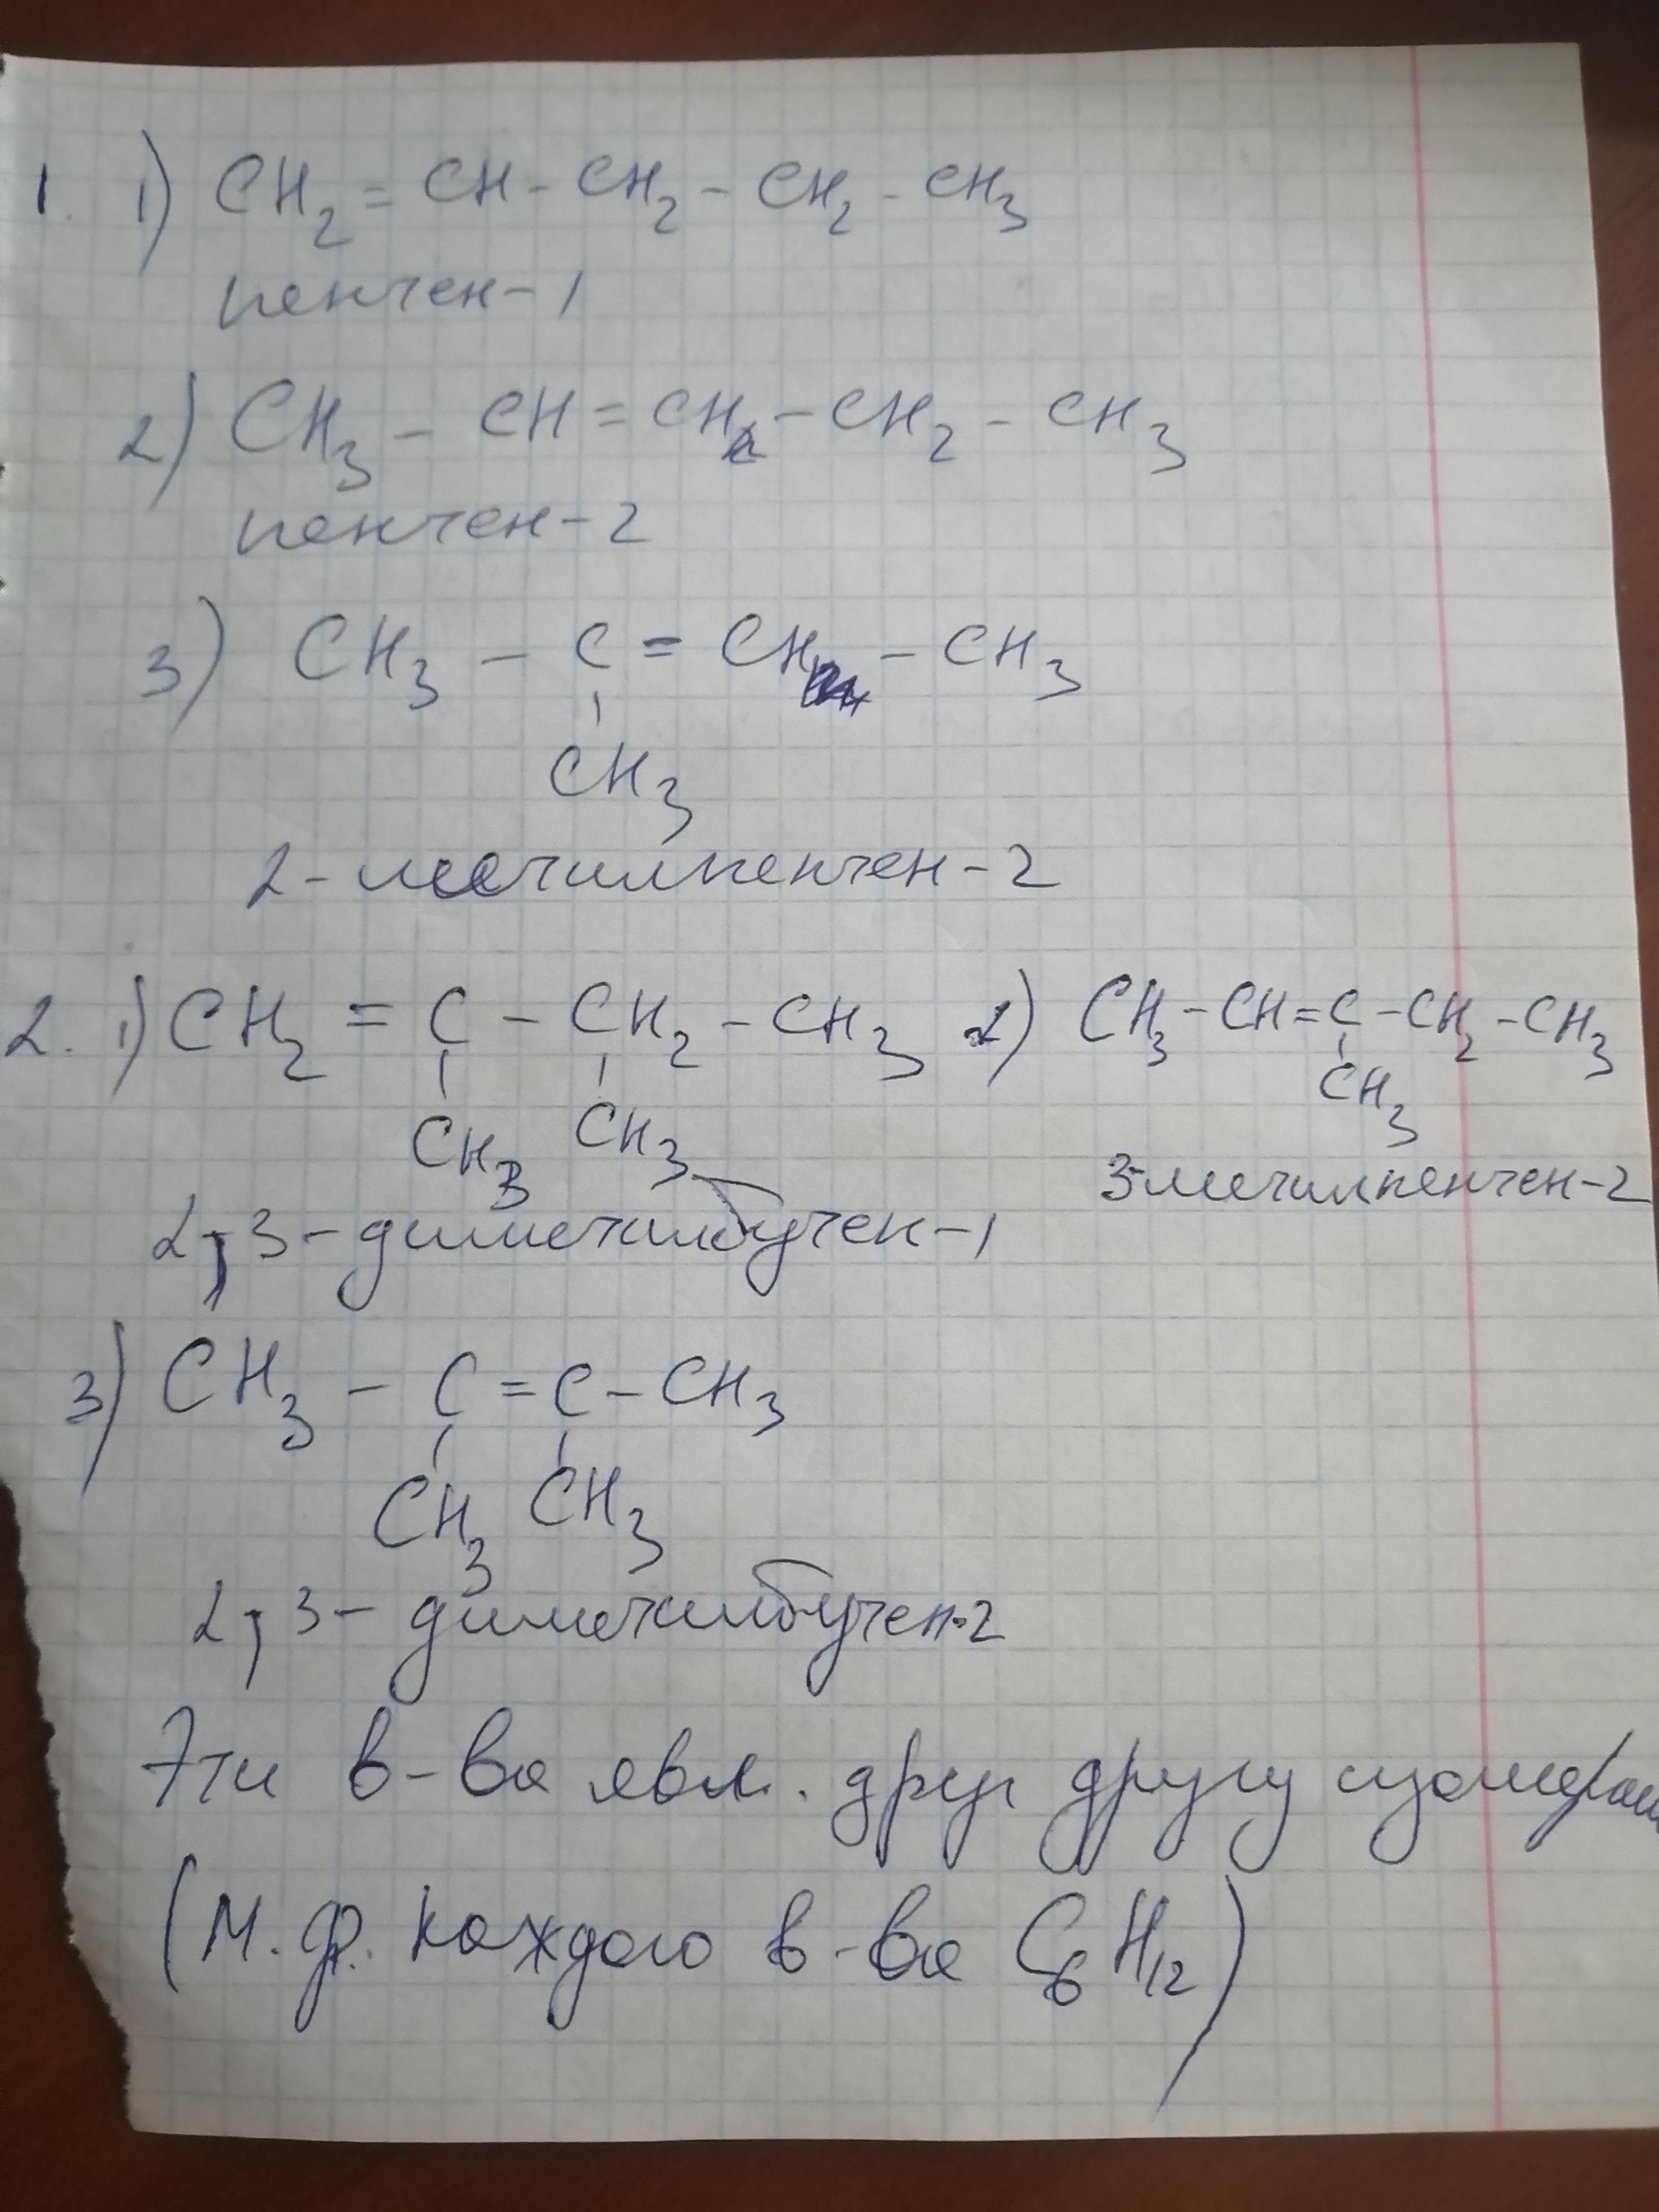 1. 1) CH₂ = CH - CH₂ - CH₂ - CH₃
пентен-1
2) CH₃ - CH = CH - CH₂ - CH₃
пентен-2
3) CH₃ - C = CH - CH₃
CH₃
2-метилпентен-2
2. 1) CH₂ = C - CH₂ - CH₃
CH₃ CH₃
2,3-диметилбутен-1
2) CH₃ - CH = C - CH₂ - CH₃
CH₃
3-метилпентен-2
3) CH₃ - C = C - CH₃
CH₃ CH₃
2,3-диметилбутен-2
Эти в-ва явл. друг другу изомерами
(М.ф. каждого в-ва C₆H₁₂)